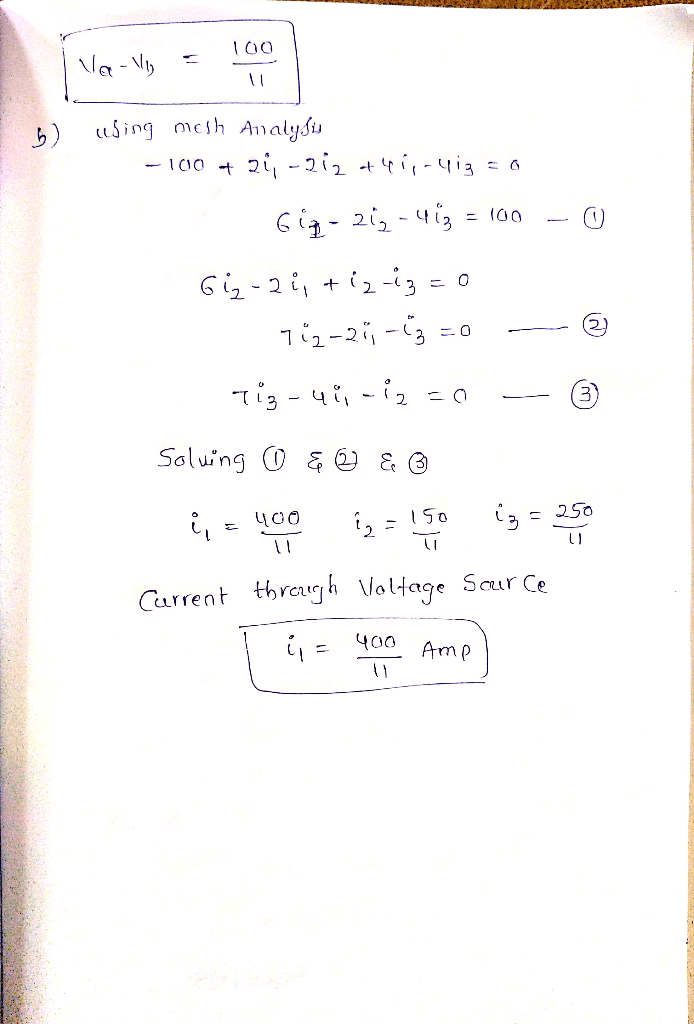 Va - Vb = 100/11
b) using mesh Analysis
- 100 + 2i₁ - 2i₂ + 4i₁ - 4i₃ = 0
6i₁ - 2i₂ - 4i₃ = 100 — ①
6i₂ - 2i₁ + i₂ - i₃ = 0
7i₂ - 2i₁ - i₃ = 0 — ②
7i₃ - 4i₁ - i₂ = 0 — ③
Solving ① & ② & ③
i₁ = 400/11 i₂ = 150/11 i₃ = 250/11
Current through Voltage Source
i₁ = 400/11 Amp